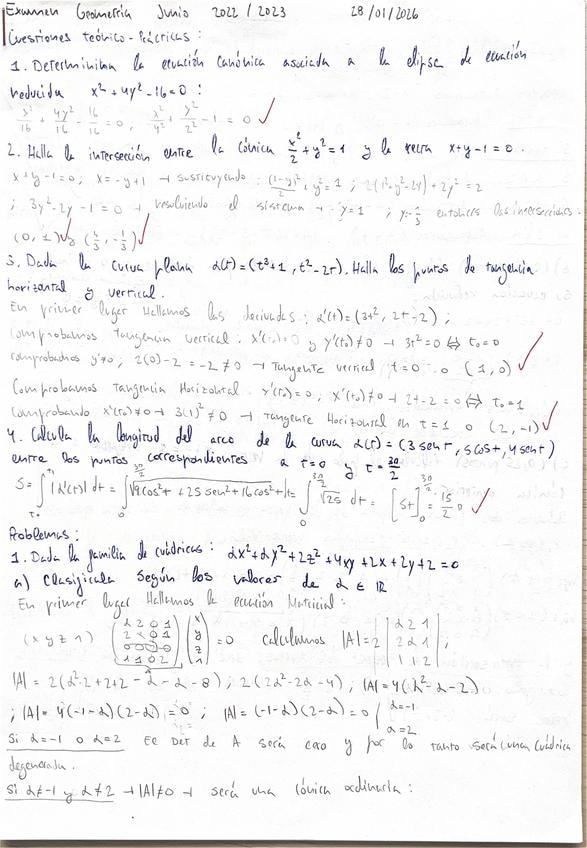 Examen Geometría Junio 2022/2023 28/01/2026
Cuestiones teórico-Prácticas:
1. Determinina la ecuación canónica asociada a la elipse de ecuación
reducida x² + 4y² - 16 = 0 :
x²/16 + 4y²/16 - 16/16 = 0, x²/4² + y²/2² - 1 = 0
2. Halla la intersección entre la cónica x²/2 + y² = 1 y la recta x+y-1=0.
x+y-1=0; x=-y+1 → sustituyendo: (1-y)²/2 + y² = 1; 2(1+y²-2y)+2y²=2
; 3y²-2y-1=0 → resolviendo el sistema y=1 ; y=-1/3 entonces las intersecciones.
(0,1) y (4/3, -1/3)
3. Dada la curva plana α(t)=(t³+1, t²-2t). Halla los puntos de tangencia
horizontal y vertical.
En primer lugar Hallamos las derivadas: α'(t)=(3t², 2t-2);
Comprobamos Tangencia vertical: x'(t₀)=0 y y'(t₀)≠0 → 3t²=0 ⇔ t₀=0
comprobamos y'≠0; 2(0)-2=-2≠0 → Tangente vertical t=0 o (1,0)
Comprobamos Tangencia Horizontal. y'(t₀)=0; x'(t₀)≠0 → 2t-2=0 ⇔ t₀=1
Comprobando x'(t₀)≠0 → 3(1)²≠0 → Tangente Horizontal en t=1 o (2,-1)
4. Calcula la longitud del arco de la curva α(t)=(3 sent, 5 cost, 4 sent)
entre los puntos correspondientes a t=0 y t=3π/2
S=∫|α'(t)| dt = ∫√(9cos²t + 25 sen²t + 16cos²t) dt = ∫√25 dt = [5t] = 15/2
Problemas:
1. Dada la familia de cuádricas: αx²+αy²+2z²+4xy+2x+2y+2=0
a) Clasifícala según los valores de α ∈ ℝ
En primer lugar Hallamos la ecuación Matricial:
(x y z 1) (α 2 0 1 / 2 α 0 1 / 0 0 2 0 / 1 1 0 2) (x y z 1) = 0 calculamos |A|=2 |α 2 1 / 2 α 1 / 1 1 2|;
|A|=2(2α²+2+2-α-α-8); 2(2α²-2α-4); |A|=4(α²-α-2)
; |A|=4(-1-α)(2-α)=0; |A|=(-1-α)(2-α)=0 { α=-1
α=2
Si α=-1 o α=2 El Det de A será cero y por lo tanto será una Cuádrica
degenerada.
Si α≠-1 y α≠2 → |A|≠0 → será una cónica ordinaria: